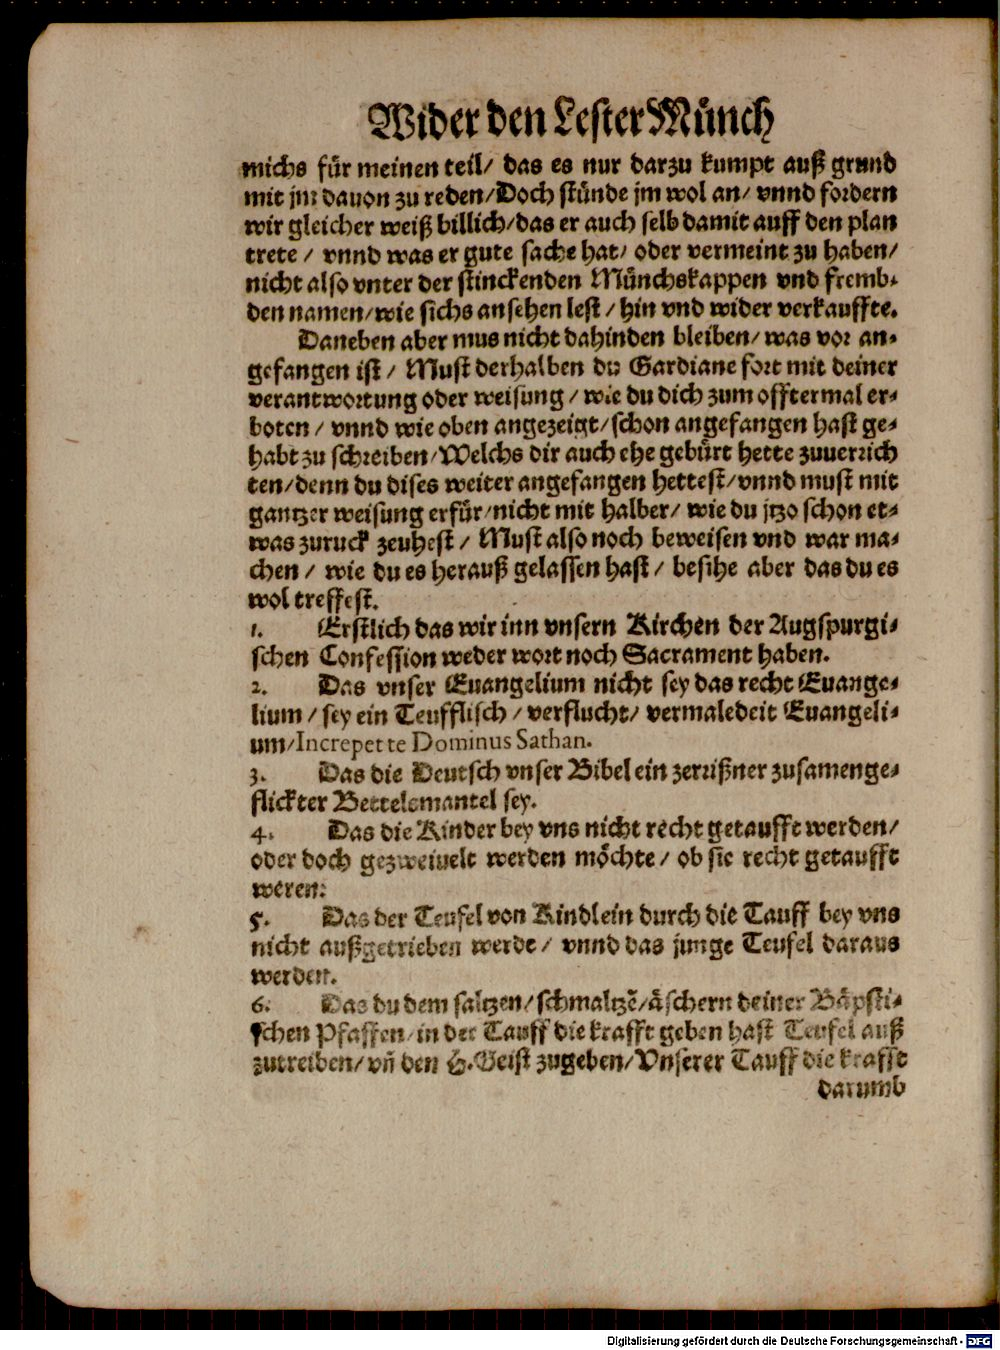 Wider den Lester Münch
michs für meinen teil/ das es nur darzu kumpt auß grund
mit jm dauon zu reden/Doch stünde jm wol an/ vnnd fordern
wir gleicher weiß billich/das er auch selb damit auff den plan
trete / vnnd was er gute sache hat/ oder vermeint zu haben/
nicht also vnter der stinckenden Münchskappen vnd fremb⸗
den namen/wie sichs ansehen lest / hin vnd wider verkauffte.
Daneben aber mus nicht dahinden bleiben/ was vor an⸗
gefangen ist / Must derhalben du Gardiane fort mit deiner
verantwortung oder weisung / wie du dich zum offtermal er⸗
boten / vnnd wie oben angezeigt/schon angefangen hast ge⸗
habt zu schreiben/Welchs dir auch ehe gebürt hette zuuerrich
ten/denn du dises weiter angefangen hettest/vnnd must mit
gantzer weisung erfür/nicht mit halber/ wie du jtzo schon et⸗
was zuruck zeuhest / Must also noch beweisen vnd war ma⸗
chen / wie du es herauß gelassen hast / besihe aber das du es
wol treffest.
1. Erstlich das wir inn vnsern Kirchen der Augspurgi⸗
schen Confession weder wort noch Sacrament haben.
2. Das vnser Euangelium nicht sey das recht Euange⸗
lium / sey ein Teufflisch / verflucht/ vermaledeit Euangeli⸗
um/Increpet te Dominus Sathan.
3. Das die Deutsch vnser Bibel ein zerrißner zusamenge⸗
flickter Bettelsmantel sey.
4. Das die Kinder bey vns nicht recht getaufft werden/
oder doch gezweiuelt werden möchte / ob sie recht getaufft
weren:
5. Das der Teufel von Kindlein durch die Tauff bey vns
nicht außgetrieben werde / vnnd das junge Teufel daraus
werden.
6. Das du dem saltzen/schmaltzē/äschern deiner Bäpsti⸗
schen Pfaffen/in der Tauff die krafft geben hast Teufel auß
zutreiben/vn̄ den H.Geist zugeben/Vnserer Tauff die krafft
darumb
Digitalisierung gefördert durch die Deutsche Forschungsgemeinschaft - DFG